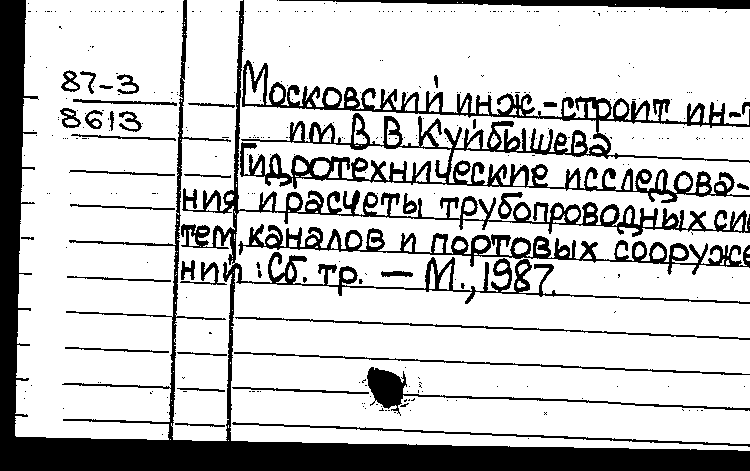 87-3
8613
Московский инж.-строит. ин-т
им. В. В. Куйбышева.
Гидротехнические исследова-
ния и расчеты трубопроводных сис
тем, каналов и портовых сооруже
ний : Сб. тр. — М., 1987.